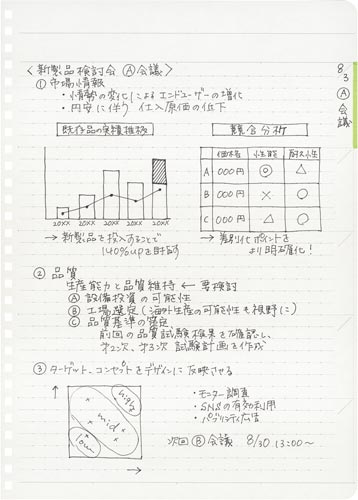 8/3 Ⓐ会議
〈新製品検討会 Ⓐ会議〉
① 市場情報
・情勢の変化によるエンドユーザーの増加
・円安に伴り 仕入原価の低下
既存品の実績推移
競合分析
価格 性能 耐久性
A 000円 ◎ △
B 000円 × ○
C 000円 △ ○
20XX 20XX 20XX 20XX 20XX
→ 新製品を投入することで
140%upを目指す
→ 差別化ポイントを
より明確化!
② 品質
生産能力と品質維持 ← 要検討
Ⓐ 設備投資の可能性
Ⓑ 工場選定(海外生産の可能性も視野に)
Ⓒ 品質基準の策定
前回の品質試験結果を確認し、
第2次、第3次 試験計画を作成
③ ターゲット、コンセプトをデザインに反映させる
high
mid
low
・モニター調査
・SNSの有効利用
・パブリシティ広告
次回 Ⓑ会議 8/30 13:00〜